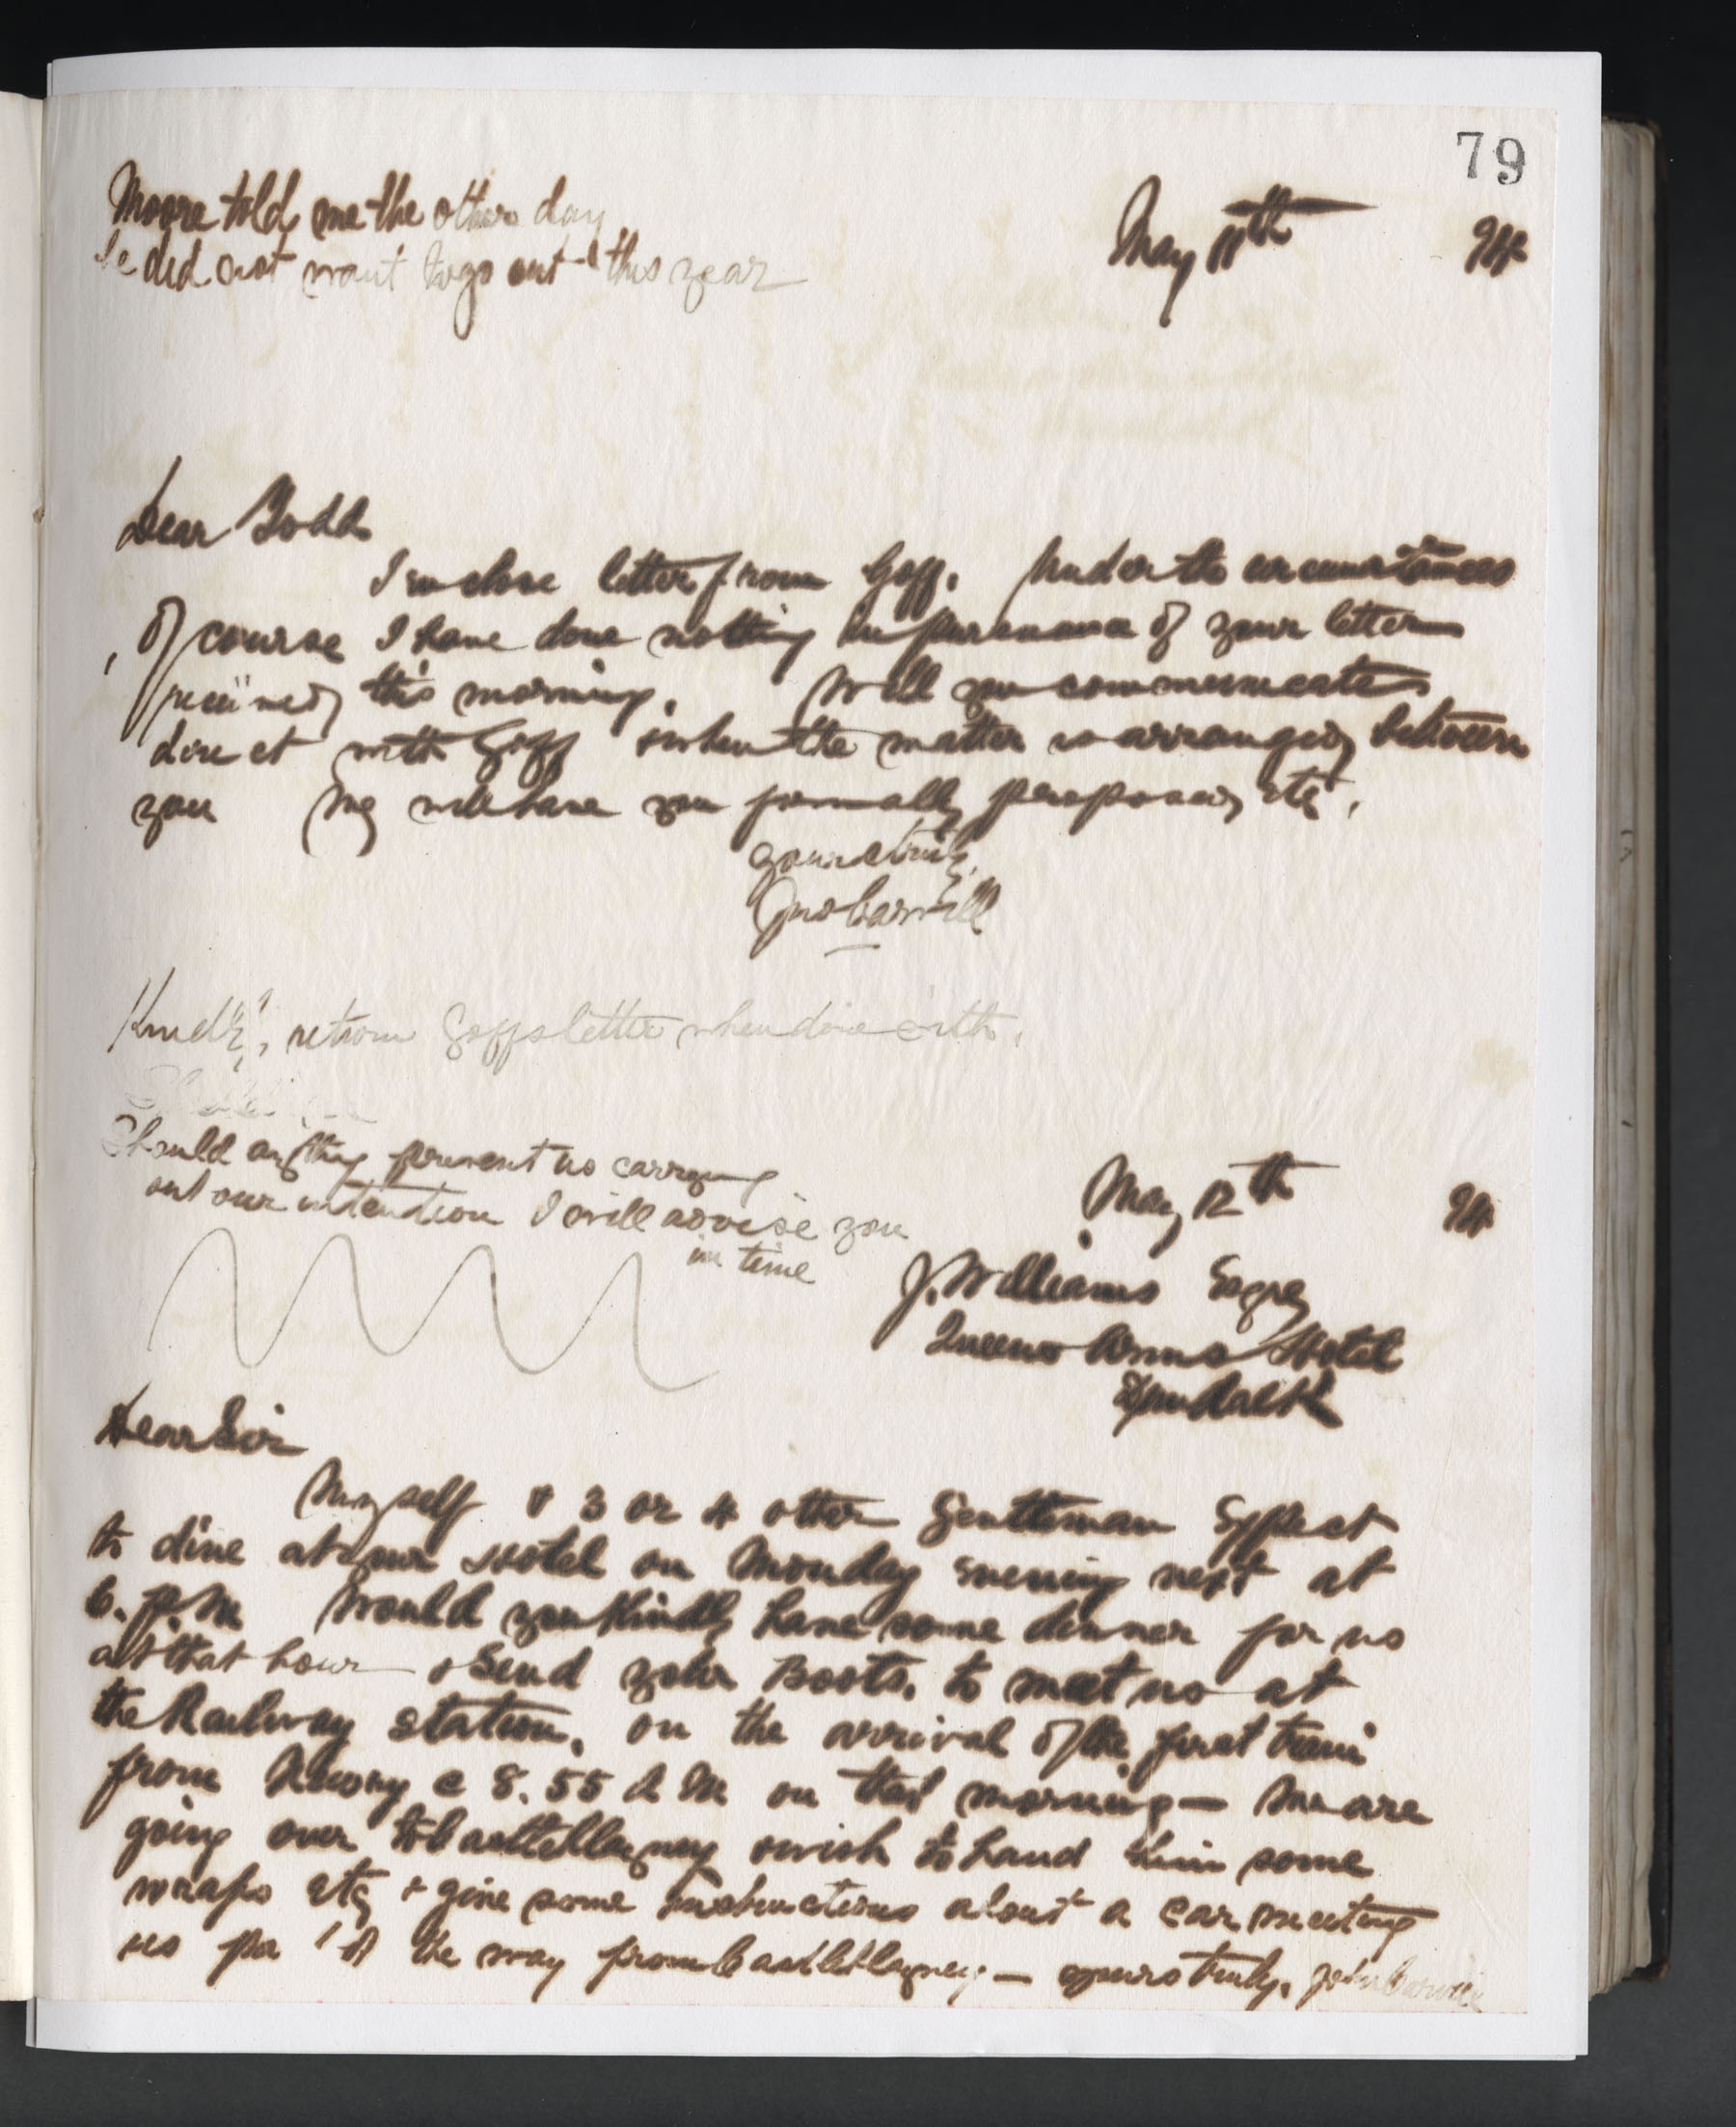 79
Moore told me the other day
he did not want to go out this year
May 11th 94
Dear Todd
I enclose letter from Goff. Under the circumstances
of course I have done nothing in pursuance of your letter
received this morning. Will you communicate
direct with Goff & when the matter is arranged between
you we will have you formally proposed etc.
Yours truly,
Jno Carvill
Kindly, return Goffs letter when done with.
Should anything prevent us carrying
out our intention I will advise you
in time
May 12th 94
J. Williams Esqre
Queens Arms Hotel
Dundalk
Dear Sir
Myself & 3 or 4 other Gentleman Expect
to dine at your Hotel on Monday evening next at
6. P.M Would you Kindly have some dinner for us
at that hour & Send your Boots. to meet us at
the Railway station, on the arrival of the first train
from Newry @ 8.55 A M on that morning — We are
going over to Castleblayney & wish to hand him some
wraps etc & give some instructions about a car meeting
us part of the way from Castleblayney — yours truly. John Carvill